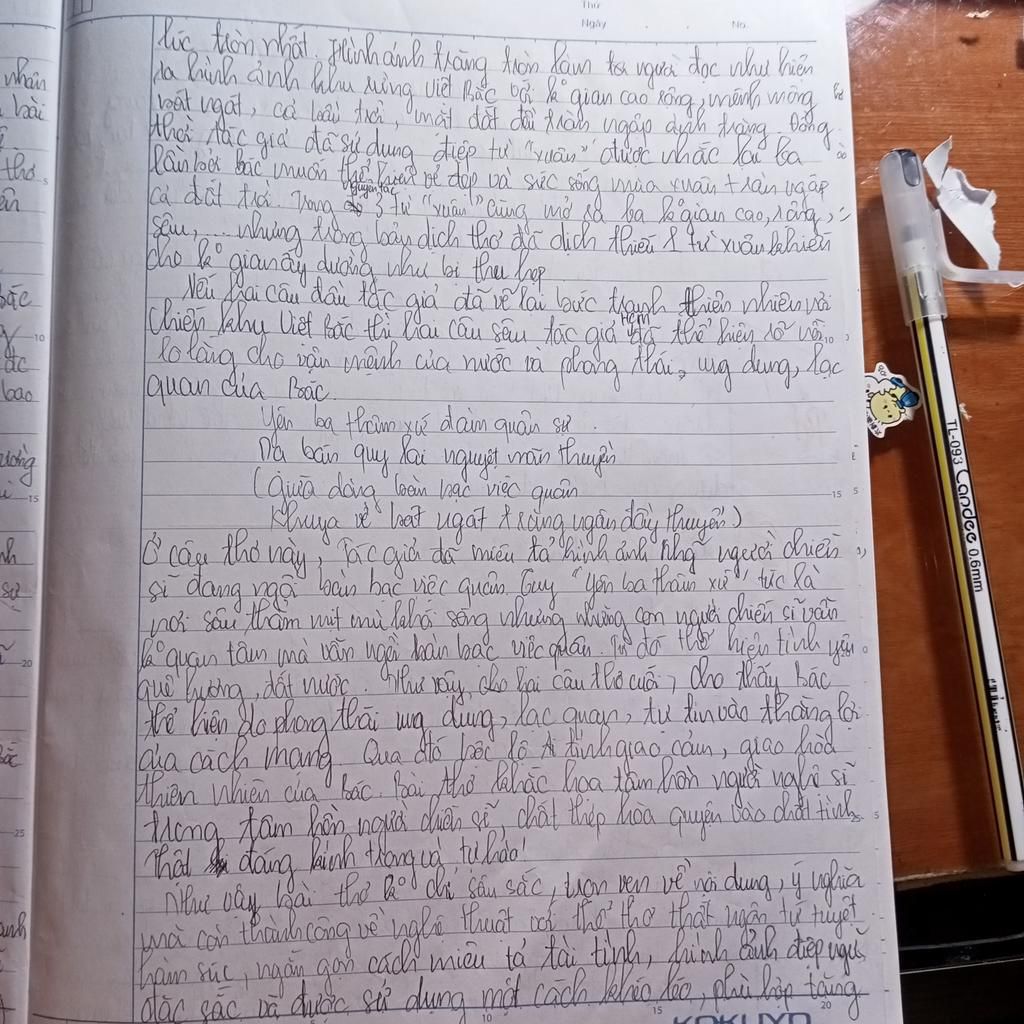 Thứ
Ngày . . No.
lúc tròn nhất. Hình ảnh trăng tròn làm tới người đọc như hiện
ra hình ảnh khu rừng Việt Bắc với k° gian cao rộng, mênh mông
bát ngát, cả bầu trời, mặt đất đầy tràn ngập ánh trăng. Đồng
thời tác giả đã sử dụng điệp từ "xuân" được nhắc lại ba
lần bởi bác muốn thể hiện vẻ đẹp và sức sống mùa xuân tràn ngập
cả đất trời. Trong nguyên tác 3 từ "xuân" cũng mở ra ba k° gian cao, rộng,
sâu, ... nhưng trong bản dịch thơ đã dịch thiếu 1 từ xuân khiến
cho k° gian ấy dường như bị thu hẹp
Nếu hai câu đầu tác giả đã vẽ lại bức tranh thiên nhiên với
chiến khu Việt Bắc thì hai câu sau tác giả đã thể hiện rõ
lo lắng cho vận mệnh của nước và phong thái, ung dung, lạc
quan của Bác.
Yên ba thâm xứ đàm quân sự
Dạ bán quy lai nguyệt mãn thuyền
(Giữa dòng bàn bạc việc quân
Khuya về bát ngát trăng ngân đầy thuyền)
Ở câu thơ này, Tác giả đã miêu tả hình ảnh nhg~ người chiến
sĩ đang ngồi bàn bạc việc quân. "Yên ba thâm xứ" tức là
nơi sâu thẳm mịt mù khói sóng nhưng những con người chiến sĩ vẫn
k° quan tâm mà vẫn ngồi bàn bạc việc quân. Từ đó thể hiện tình yêu
quê hương, đất nước. Như vậy, cho hai câu thơ cuối, cho thấy bác
thể hiện phong thái ung dung, lạc quan, tự tin vào thắng lợi
của cách mạng. Qua đó bộc lộ tính giao cảm, giao hòa
thiên nhiên của Bác. Bài thơ khắc họa tâm hồn người nghệ sĩ
trong tâm hồn người chiến sĩ, chất thép hòa quyện vào chất tình
thật đáng kính trọng và tự hào!
Như vậy bài thơ k° chỉ sâu sắc, trọn vẹn về nội dung, ý nghĩa
mà còn thành công về nghệ thuật với thể thơ thất ngôn tứ tuyệt
hàm súc, ngắn gọn cách miêu tả tài tình, hình ảnh điệp ngữ
đặc sắc và được sử dụng một cách khéo léo, phù hợp tăng
KOKUYO
TL-093 Candee 0.6mm